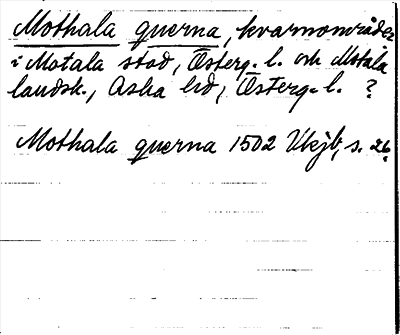 Mothala querna, kvarnområde
i Motala stad, Österg. l. och Motala
landsk., Aska hd, Österg. l. ?
Mothala querna 1502 Vkjb, s. 26.